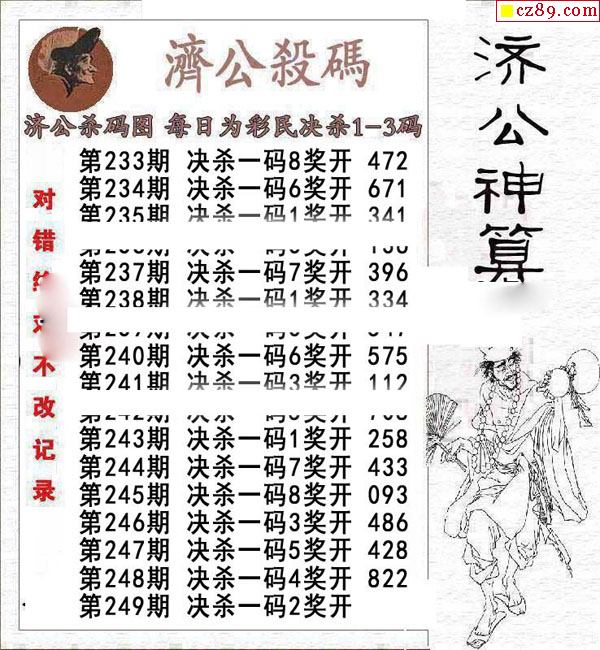 cz89.com
濟公殺碼
济公神算
济公杀码图 每日为彩民决杀1-3码
对错绝对不改记录
第233期 决杀一码8奖开 472
第234期 决杀一码6奖开 671
第235期 决杀一码1奖开 341
第237期 决杀一码7奖开 396
第238期 决杀一码1奖开 334
第240期 决杀一码6奖开 575
第241期 决杀一码3奖开 112
第243期 决杀一码1奖开 258
第244期 决杀一码7奖开 433
第245期 决杀一码8奖开 093
第246期 决杀一码3奖开 486
第247期 决杀一码5奖开 428
第248期 决杀一码4奖开 822
第249期 决杀一码2奖开